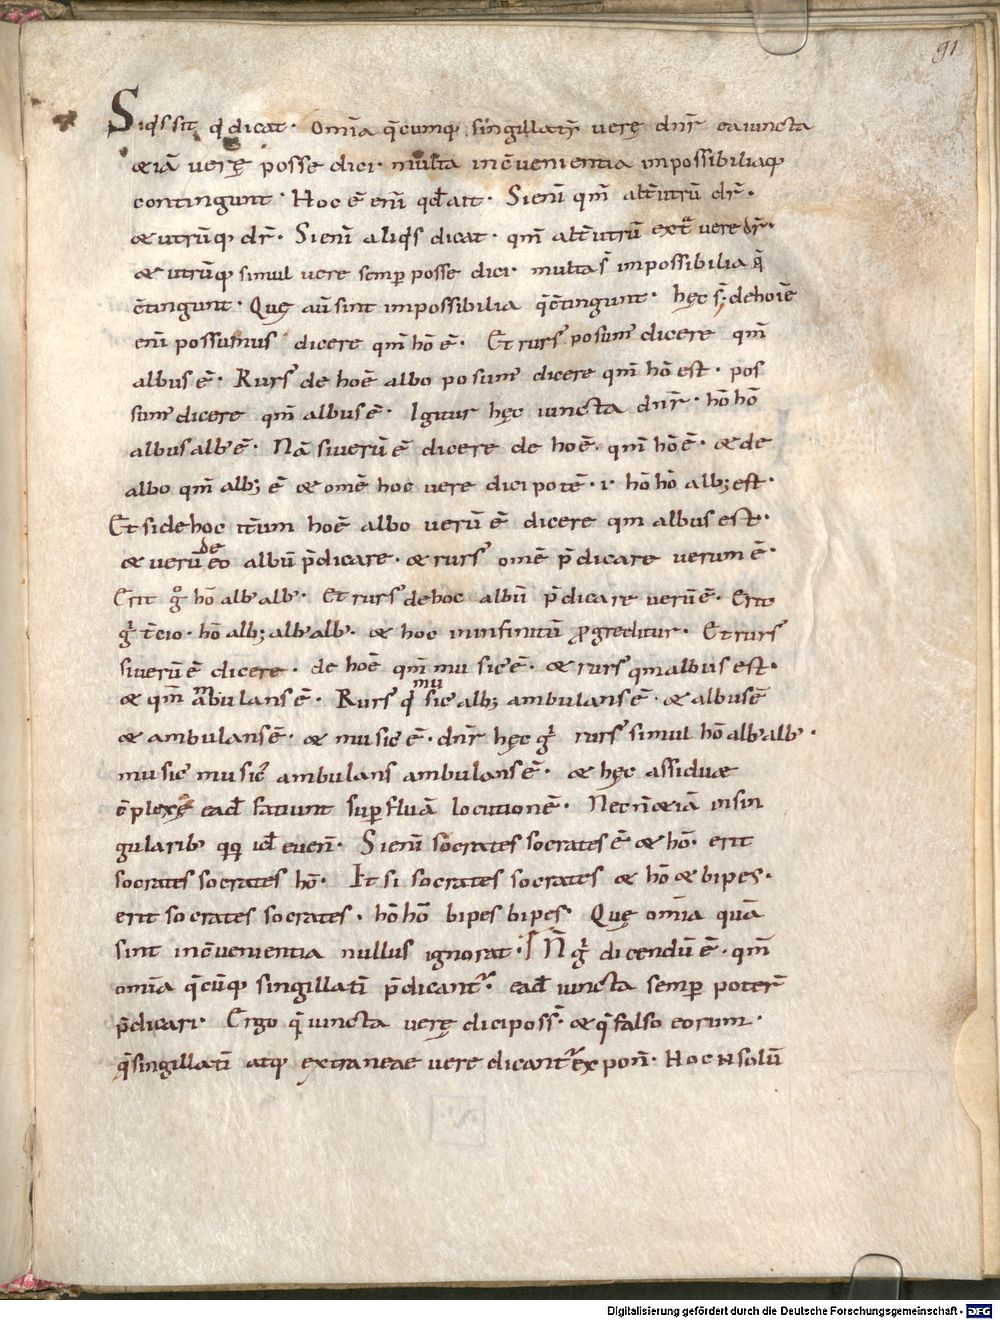 91
Siqͥs sit qͥ dicat· Om̄ia q̄cumq; singillatī verę dn̄r ea iuncta
&iā verę posse dici· multa incōvenientia impossibiliaq;
contingunt· Hoc ē eni̅ qd̄ ait· Si eni̅ qm̄ alt̄utrū dr̄·
& utrūq; dr̄· Si eni̅ aliqͥs dicat· qm̄ alt̄utrū ext̄ vere dr̄·
& utrūq; simul vere semꝑ posse dici· multa s̄ impossibilia q̄
cōtingunt· Quę aū sint impossibilia q̄ cōtingunt· hęc s̄; de hoīe
eni̅ possumus dicere qm̄ hō ē· Et rursꝰ posumꝰ dicere qm̄
albus ē· Rursꝰ de hoē albo posumꝰ dicere qm̄ hō est· pos
sumꝰ dicere qm̄ albus ē· Igitur hęc iuncta dn̄r· hō hō
albus albꝰ ē· Nā si verū ē dicere de hoē· qm̄ hō ē· & de
albo qm̄ alb; ē & omē hoc vere dici potē· ·i· hō hō alb; est·
Et si de hoc it̄um hoē albo verū ē dicere qm albus est·
& verū de eo albū p̄dicare· & rursꝰ omē p̄dicare verum ē·
Erit gͦ hō albꝰ albꝰ· Et rursꝰ de hoc albū p̄dicare verū ē· Erit
gͥ t̄cio· hō alb; albꝰ albꝰ· & hoc in infinitū ꝓgreditur· Et rursꝰ
si verū ē dicere· de hoē qm̄ musicꝰ ē· & rursꝰ qm albus est·
& qm̄ ambulans ē· Rursꝰ qͥ musicꝰ alb; ambulans ē· & albus ē
& ambulans ē· & musicꝰ ē· dn̄r hęc gͥ rursꝰ simul hō albꝰ albꝰ·
musicꝰ musicꝰ ambulans ambulans ē· & hęc assiduae
cōplexę ead̄ faciunt suꝑfluā locutionē· Nec n̄ &iā in sin
gularibꝰ qͥq; id̄ even̄· Si eni̅ socrates socrates ē & hō· erit
socrates socrates hō· It si socrates socrates & hō & bipes·
erit socrates socrates· hō hō bipes bipes· Quę om̄ia quā
sint incōvenientia nullus ignorat· N̄ gͥ dicendū ē· qm̄
om̄ia q̄cūq; singillatī p̄dicantꝰ· ead̄ iuncta semꝑ poter̄
p̄dicari· Ergo q̄ iuncta verę dici poss̄· & q̄ falso eorum·
q̄ singillatī atq; extraneae vere dicantꝰ expon̄· Hoc n̄ solū
Digitalisierung gefördert durch die Deutsche Forschungsgemeinschaft · DFG